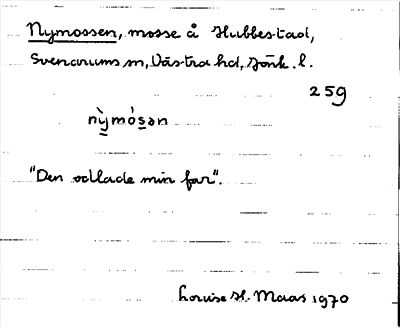 Nymossen, mosse å Hubbestad,
Svenarums sn, Västra hd, Jönk. l.
259
nỳmós̲ən
"Den odlade min far".
Louise H. Maas 1970